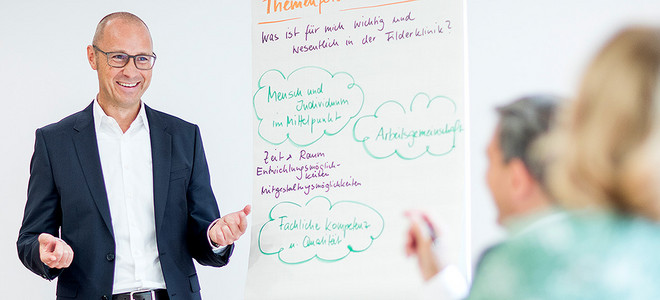 Was ist für mich wichtig und
wesentlich in der Filderklinik?
Mensch und
Individuum
im Mittelpunkt
Arbeitsgemeinschaft
Zeit & Raum
Entwicklungsmöglich-
keiten
Mitgestaltungsmöglichkeiten
Fachliche Kompetenz
u. Qualität